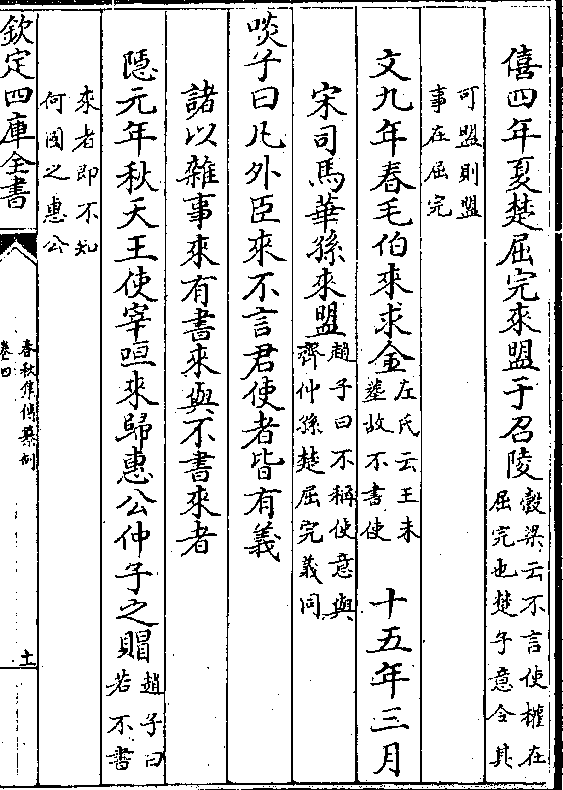 僖四年夏楚屈完來盟于召陵穀梁云不言使權在屈完也楚子意令其
可盟則盟事在屈完
文九年春毛伯來求金左氏云王未塟故不書使十五年三月
宋司馬華孫來盟趙子曰不稱使意與齊仲孫楚屈完義同
啖子曰凡外臣來不言君使者皆有義
諸以雜事來有書來與不書來者
隱元年秋天王使宰咺來歸惠公仲子之賵趙子曰若不書
來者即不知何國之惠公
欽定四庫全書
春秋集傳纂例
卷四
十一